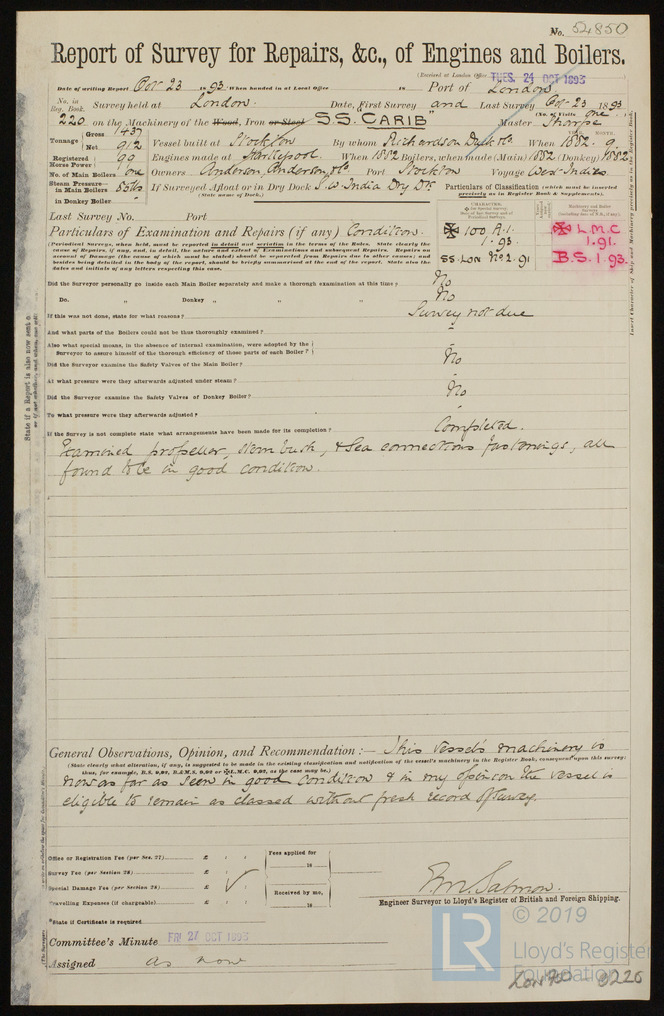 No. 54850
Report of Survey for Repairs, &c., of Engines and Boilers.
(Received at London Office TUES. 24 OCT 1893
Date of writing Report Oct 23 1893. When handed in at Local Office 18 Port of London
No. in Reg. Book. Survey held at London. Date, First Survey and Last Survey Oct 23 1893
(No. of Visits one.)
220 on the Machinery of the Wood, Iron or Steel S.S. "CARIB" Master Tharpe
Tonnage Gross 1437 Net 912 Vessel built at Stockton By whom Richardson Duck & Co. When 1882. 9.
Registered Horse Power 99 Engines made at Hartlepool. When 1882 Boilers, when made (Main) 1882 (Donkey) 1882
No. of Main Boilers one Owners Anderson, Anderson, & Co. Port Stockton Voyage West Indies
Steam Pressure in Main Boilers 85 lbs If Surveyed Afloat or in Dry Dock S.W. India Dry Dk.
(State name of Dock.)
in Donkey Boiler -
Particulars of Classification (which must be inserted precisely as in Register Book & Supplements).
Last Survey No. Port
CHARACTER.
Machinery and Boiler Surveys
Particulars of Examination and Repairs (if any) Condition.
100 A.1.
1.93.
SS. Lon No 2. 91
L.M.C
1.91.
B.S. 1.93.
(Periodical Surveys, when held, must be reported in detail and seriatim in the terms of the Rules. State clearly the
cause of Repairs, if any, and, in detail, the nature and extent of Examinations and subsequent Repairs. Repairs on
account of Damage (the cause of which must be stated) should be separated from Repairs due to other causes; and
besides being detailed in the body of the report, should be briefly summarised at the end of the report. State also the
dates and initials of any letters respecting this case.
Did the Surveyor personally go inside each Main Boiler separately and make a thorough examination at this time? No
Do. " Donkey " " " " No
If this was not done, state for what reasons? Survey not due
And what parts of the Boilers could not be thus thoroughly examined? -
Also what special means, in the absence of internal examination, were adopted by the
Surveyor to assure himself of the thorough efficiency of those parts of each Boiler? -
Did the Surveyor examine the Safety Valves of the Main Boiler? No
At what pressure were they afterwards adjusted under steam? -
Did the Surveyor examine the Safety Valves of Donkey Boiler? No
To what pressure were they afterwards adjusted? -
If the Survey is not complete state what arrangements have been made for its completion? Completed.
Examined propeller, stern bush, & sea connections fastenings, all
found to be in good condition.
General Observations, Opinion, and Recommendation:— This vessel's machinery is
(State clearly what alteration, if any, is suggested to be made in the existing classification and notification of the vessel's machinery in the Register Book, consequent upon this survey;
thus, for example, B.S. 9,93, B.&M.S. 9,93 or L.M.C. 9,93, as the case may be.)
now as far as seen in good condition & in my opinion the vessel is
eligible to remain as classed without fresh record of survey.
Office or Registration Fee (per Sec. 27) £ : :
Survey Fee (per Section 28) £ : :
Special Damage Fee (per Section 28) £ : :
Travelling Expenses (if chargeable) £ : :
Fees applied for
18
Received by me,
18
*State if Certificate is required
R.M. Salmon.
Engineer Surveyor to Lloyd's Register of British and Foreign Shipping.
Committee's Minute FRI 27 OCT 1893
Assigned as now
LR
© 2019
Lloyd's Register
Foundation
State if a Report is also now sent on
Insert Character of Ship and Machinery precisely as in the Register Book.